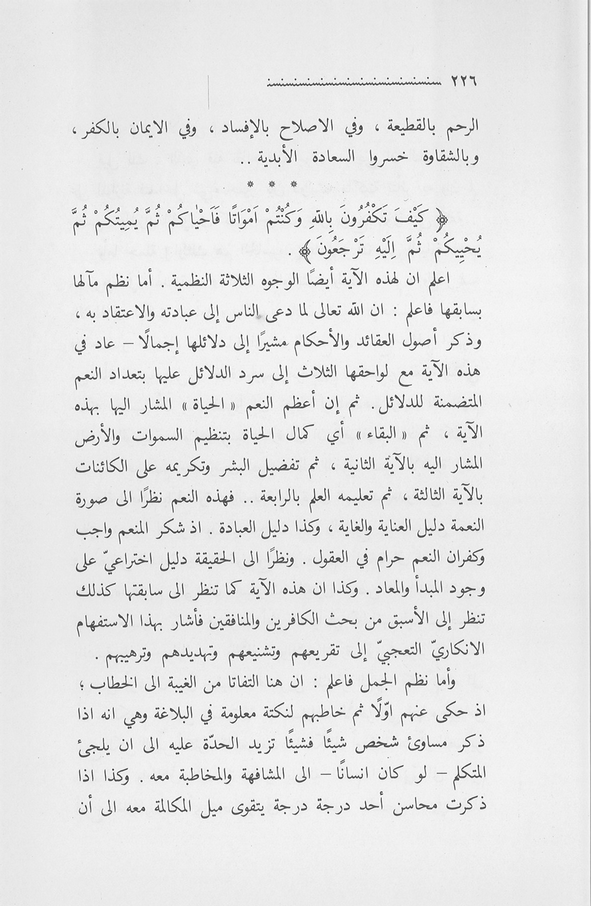 ٢٢٦
الرحم بالقطيعة ، وفي الاصلاح بالإفساد ، وفي الايمان بالكفر ،
وبالشقاوة خسروا السعادة الأبدية ..
* * *
﴿ كَيْفَ تَكْفُرُونَ بِاللّٰهِ وَكُنْتُمْ اَمْوَاتًا فَاَحْيٰاكُمْ ثُمَّ يُمِيتُكُمْ ثُمَّ
يُحْيِيكُمْ ثُمَّ اِلَيْهِ تُرْجَعُونَ ﴾ .
اعلم ان لهذه الآية أيضًا الوجوه الثلاثة النظمية . أما نظم مآلها
بسابقها فاعلم : ان الله تعالى لما دعى الناس إلى عبادته والاعتقاد به ،
وذكر أصول العقائد والأحكام مشيرًا إلى دلائلها إجمالًا – عاد في
هذه الآية مع لواحقها الثلاث إلى سرد الدلائل عليها بتعداد النعم
المتضمنة للدلائل. ثم إن أعظم النعم «الحياة» المشار اليها بهذه
الآية ، ثم «البقاء» أي كمال الحياة بتنظيم السموات والأرض
المشار اليه بالآية الثانية ، ثم تفضيل البشر وتكريمه على الكائنات
بالآية الثالثة ، ثم تعليمه العلم بالرابعة .. فهذه النعم نظرًا الى صورة
النعمة دليل العناية والغاية ، وكذا دليل العبادة . اذ شكر المنعم واجب
وكفران النعم حرام في العقول . ونظرًا الى الحقيقة دليل اختراعيّ على
وجود المبدأ والمعاد . وكذا ان هذه الآية كما تنظر الى سابقتها كذلك
تنظر إلى الأسبق من بحث الكافرين والمنافقين فأشار بهذا الاستفهام
الانكاريّ التعجبيّ إلى تقريعهم وتشنيعهم وتهديدهم وترهيبهم .
وأما نظم الجمل فاعلم : ان هنا التفاتا من الغيبة الى الخطاب ؛
اذ حكى عنهم اوّلًا ثم خاطبهم لنكتة معلومة في البلاغة وهي انه اذا
ذكر مساوئ شخص شيئًا فشيئًا تزيد الحدّة عليه الى ان يلجئ
المتكلم – لو كان انسانًا – الى المشافهة والمخاطبة معه . وكذا اذا
ذكرت محاسن أحد درجة درجة يتقوى ميل المكالمة معه الى أن